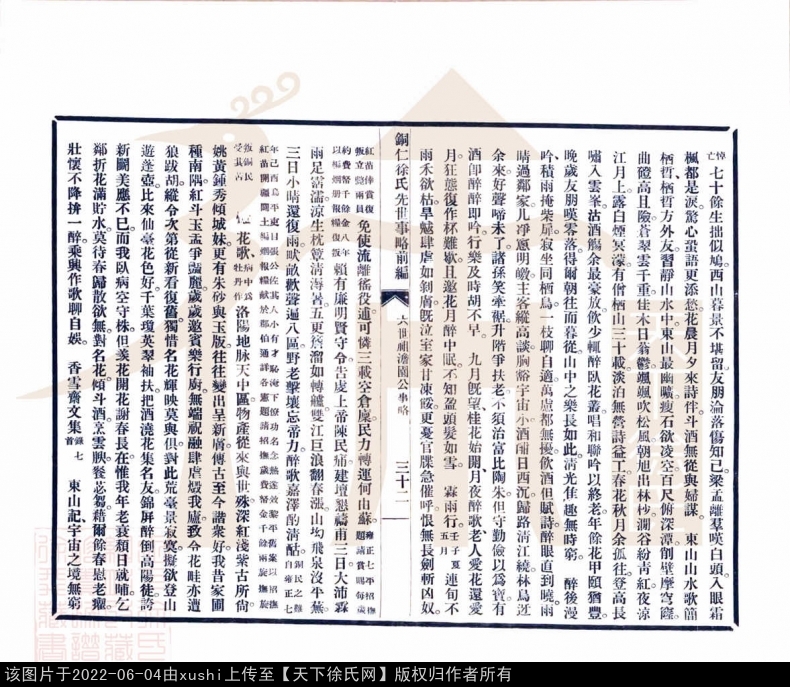 悼亡七十餘生拙似鳩西山暮景不堪留友朋淪落傷知己梁孟離羣嘆白頭入眼霜
楓都是淚驚心蛩語更添愁花晨月夕來詩伴斗酒無從與婦謀 東山山水歌簡
栖栖哲栖方外友習靜山水中東山最幽曠瘦石欲凌空百尺俯深潭削壁摩穹窿
曲磴高且險蒼翠雲千重佳木日蓊鬱颯颯吹松風朝旭出林杪澗谷紛青紅夜涼
江月上露白煙冥濛有僧栖山三十載淡泊無營詩益工春花秋月余孤往登高長
嘯入雲峯沽酒觴余最豪放飲少輒醉臥花叢唱和聯吟以終老年餘花甲頤猶豐
晚歲友朋嘆零落得爾朝往而暮從山中之樂長如此清光隹趣無時窮 醉後漫
吟積雨掩柴扉寂坐同栖鳥一枝聊自適萬慮都無擾飲酒但賦詩醉眼直到曉雨
晴過鄰家儿凈愿明皦主客縱高談胸豁宇宙小酒酣日西沉歸路清江繞林鳥近
余來好聲啼未了諸孫笑牽裾升階爭扶老不須治富比陶朱但守勤儉以爲寶有
酒卽醉醉即吟行樂及時胡不早 九月旣望桂花始開月夜醉歌老人愛花還愛
月狂態復作杯難歇且邀花月醉中眠不知盈頭髮如雪 霖雨行壬子夏五月連旬不
雨禾欲枯旱魃肆虐如剝膚旣泣室家甘凍餒更憂官牒急催呼恨無長劍斬凶奴
銅仁徐氏先世事略前編 六世祖澹園公事略 三十二
免使流離徭役逋可憐三載空倉廋民力轉運何山蘇
賴有廉明賢守令告虔上帝陳民痡建壇懇禱甫三日大沛霖
雨足霑濡涼生枕簟淸溽暑五更簷溜如轉艫雙江巨浪翻春漲山坳飛泉沒平蕪
三日小晴還復雨畎畝歡聲遍八區野老擊壤忘帝力醉歌嘉澤酌清酤
花歌病中爲牡丹作洛陽地脉天中區物產從來與世殊深紅淺紫古所尙
姚黃鍾秀傾城妹更有朱砂與玉版往往變出呈新膚傳古至今諧衆好我昔家圃
種南隅紅斗玉盂爭豔麗歲歲邀賓樂行廚無端祝融肆虐燬我廬可令花畦亦遭
狼跋胡縱令次第從新看復舊獨惜名花輝映莫與俱對此荒臺景寂寞擬欲登山
遊蓬壺比來仙臺花色好千葉瓊英翠袖扶把酒澆花集名友錦屏醉倒高陽徒誇
新鬭美應不已而我臥病空守株但羨花開花謝春長在惟我年老衰頹日就晡乞
鄰折花滿貯水莫待春歸散欲無對名花傾斗酒烹雲腴餐苾蒭藉爾餘春慰老癯
壯懷不降拚一醉乘興作歌聊自娛 香雪齋文集錄七首 東山記宇宙之境無窮
该图片于2022-06-04由xushi上传至【天下徐氏网】版权归作者所有